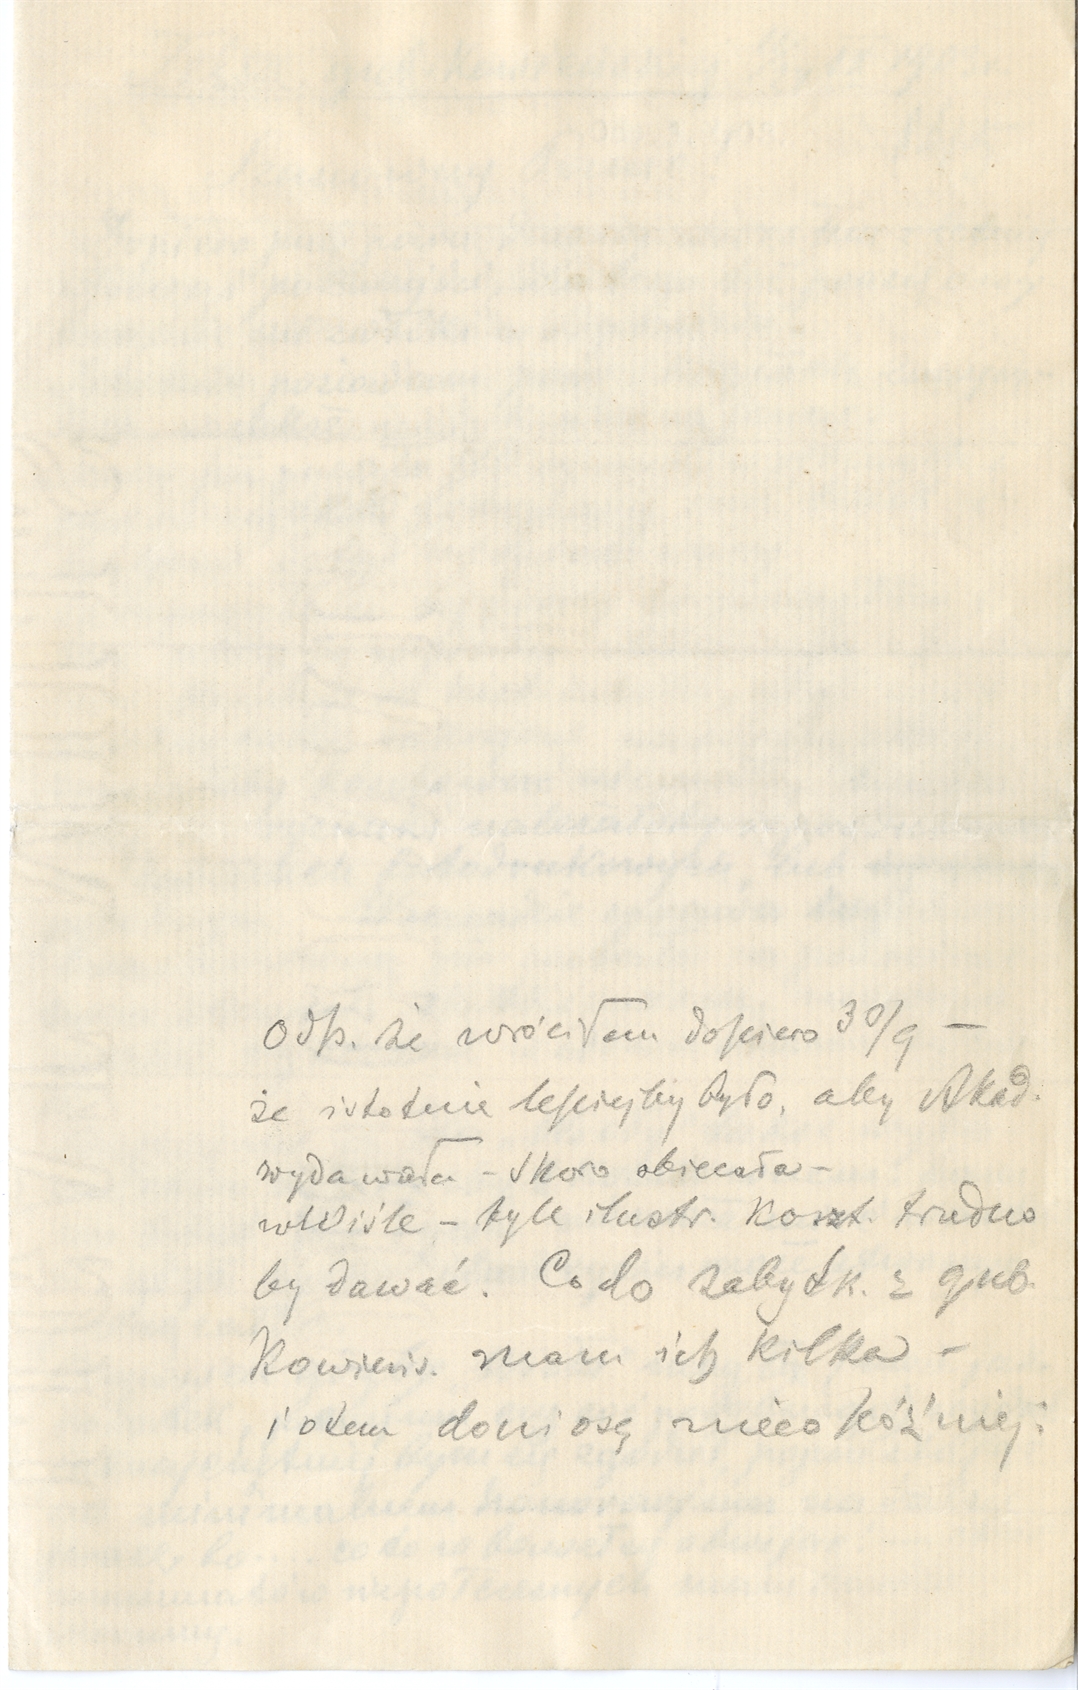 Odp. że wróciłem dopiero 30/9 —
że istotnie lepiejby było, aby Akad.
wydawała – skoro obiecała –
w Wiśle – tyle ilustr. koszt. trudno
by dawać. Co do zabytk. z gub.
Kowieńs. mam ich kilka –
i otem doniosę nieco później